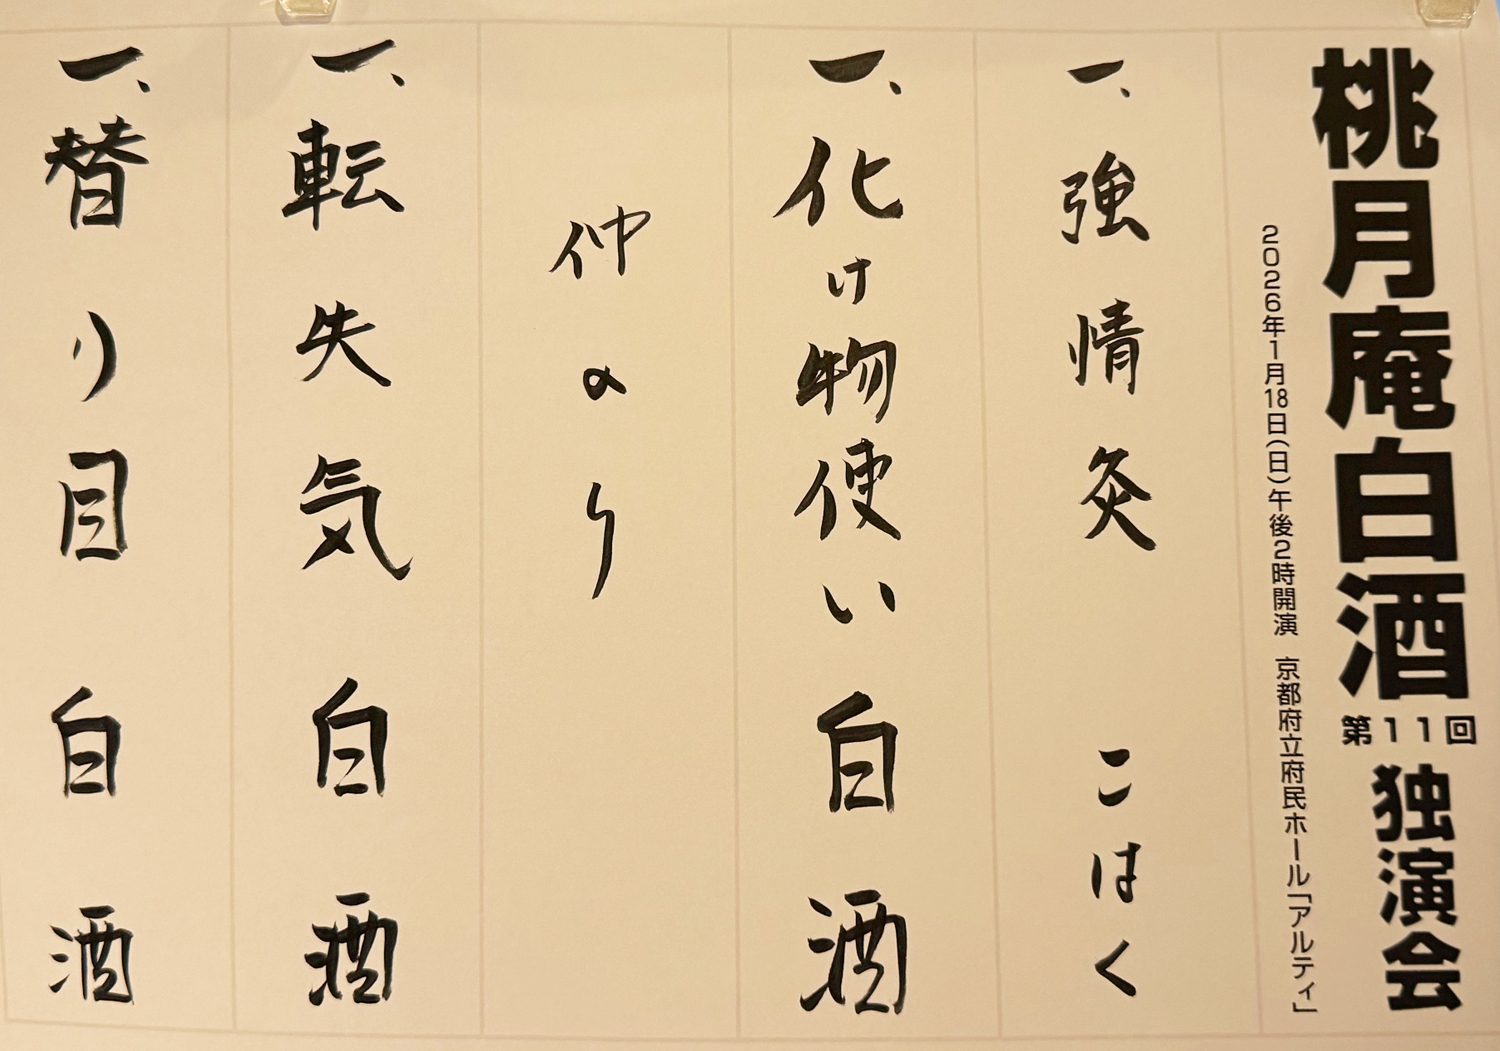 桃月庵白酒 第11回 独演会
2026年1月18日(日)午後2時開演 京都府立府民ホール「アルティ」
一、強情灸 こはく
一、化け物使い 白酒
仲のり
一、転失気 白酒
一、替り目 白酒